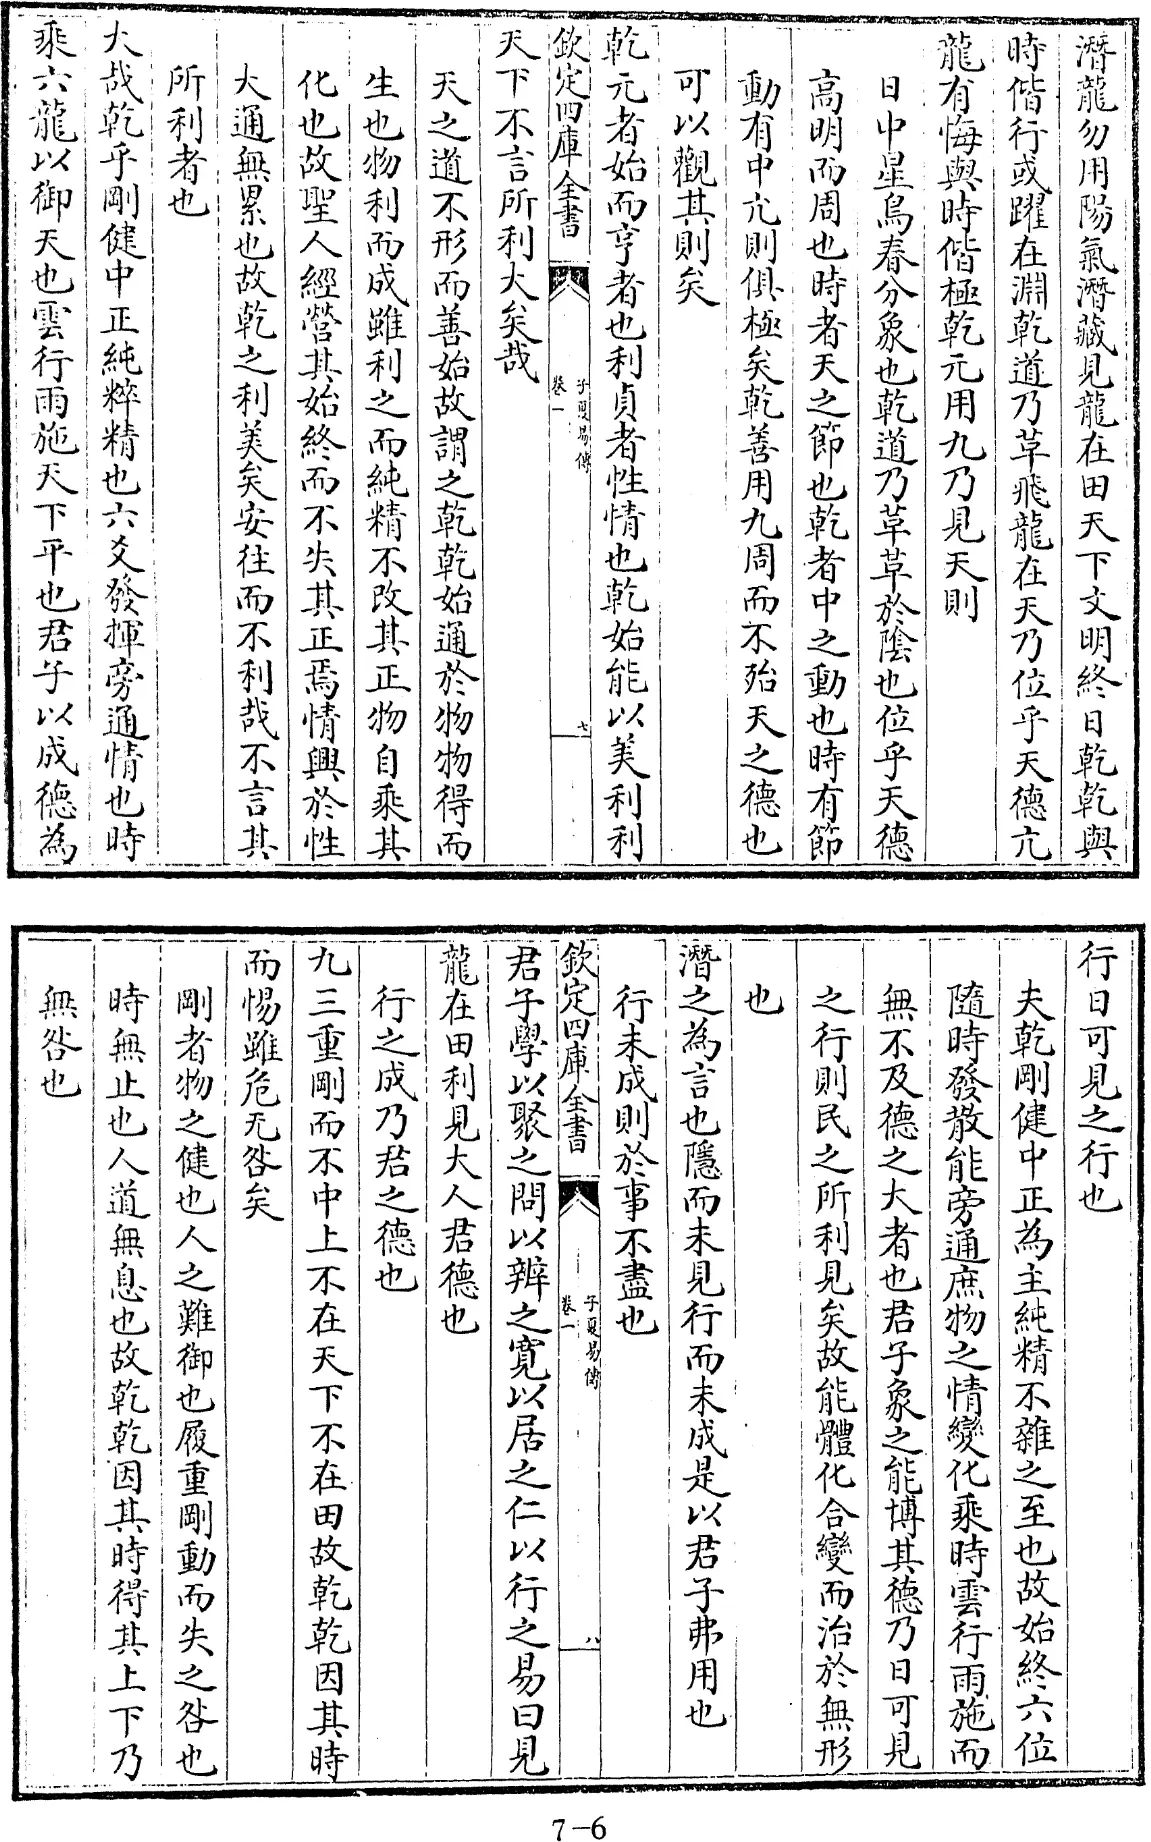 潛龍勿用陽氣潛藏見龍在田天下文明終日乾乾與
時偕行或躍在淵乾道乃革飛龍在天乃位乎天德亢
龍有悔與時偕極乾元用九乃見天則
日中星鳥春分象也乾道乃革革於陰也位乎天德
高明而周也時者天之節也乾者中之動也時有節
動有中亢則俱極矣乾善用九周而不殆天之德也
可以觀其則矣
乾元者始而亨者也利貞者性情也乾始能以美利利
欽定四庫全書
子夏易傳
卷一
七
天下不言所利大矣哉
天之道不形而善始故謂之乾乾始通於物物得而
生也物利而成雖利之而純精不改其正物自乘其
化也故聖人經營其始終而不失其正焉情興於性
大通無累也故乾之利美矣安往而不利哉不言其
所利者也
大哉乾乎剛健中正純粹精也六爻發揮旁通情也時
乘六龍以御天也雲行雨施天下平也君子以成德為
行日可見之行也
夫乾剛健中正為主純精不雜之至也故始終六位
隨時發散能旁通庶物之情變化乘時雲行雨施而
無不及德之大者也君子象之能博其德乃日可見
之行則民之所利見矣故能體化合變而治於無形
也
潛之為言也隱而未見行而未成是以君子弗用也
行未成則於事不盡也
欽定四庫全書
子夏易傳
卷一
八
君子學以聚之問以辨之寬以居之仁以行之易曰見
龍在田利見大人君德也
行之成乃君之德也
九三重剛而不中上不在天下不在田故乾乾因其時
而惕雖危无咎矣
剛者物之健也人之難御也履重剛動而失之咎也
時無止也人道無息也故乾乾因其時得其上下乃
無咎也
7-6